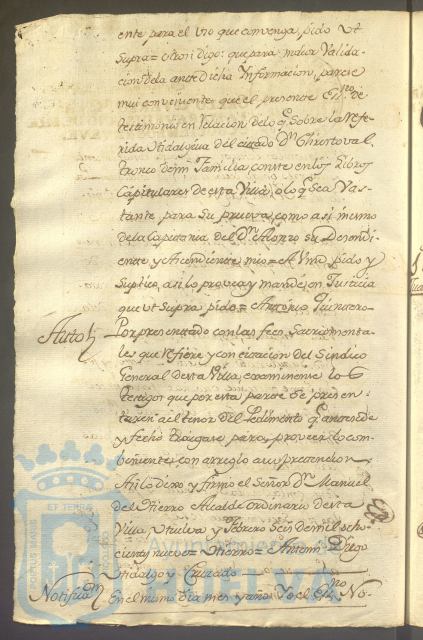 ente para el uso que convenga, pido Ut
Supra = otrosi digo: que para maior Valida-
cion dela antedicha Informacion, parece
mui conveniente, que el presente Ess.no de
testimonio en relacion delo q.e Sobre la refe-
rida Hidalguia del citado D.n Christoval,
tronco demi Familia, conste en los Libros
Capitulares de esta Villa, o lo q.e sea Vas-
tante para su prueva, como asi mismo
dela Capitania del D.n Alonzo su Decendi-
ente, y Acendiente mio = A Vmd. pido y
Suplico, asi lo provea y mande, en Justicia
que ut Supra pido = Antonio Quintero =
Auto
Por presentado con las fees Sacramenta-
les que refiere, y con citacion del Sindico
General desta Villa, examinense los
testigos que por esta parte se presen-
taren al tenor del Pedimento q.e antecede
y fecho traigase para proveer lo com-
beniente, con arreglo a su pretencion,
Asi lo dixo y firmó el Señor D.n Manuel
del Hierro Alcalde Ordinario desta
Villa Huelva y Febrero Seis de mil Ocho-
cientos nueve = Hierro = Antoni Diego
Hidalgo y Quizado
Notificaon
En el mismo dia mes y año: Yo el Ess.no No-
PORTUS MARIS
ET TERRAE
CUSTODIA
Ayuntamiento de
HUELVA